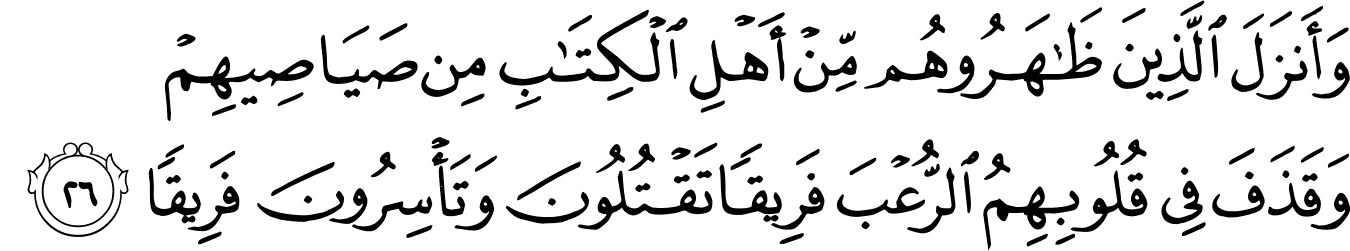 وَأَنزَلَ ٱلَّذِينَ ظَٰهَرُوهُم مِّنْ أَهْلِ ٱلْكِتَٰبِ مِن صَيَاصِيهِمْ
وَقَذَفَ فِى قُلُوبِهِمُ ٱلرُّعْبَ فَرِيقًا تَقْتُلُونَ وَتَأْسِرُونَ فَرِيقًا ٢٦